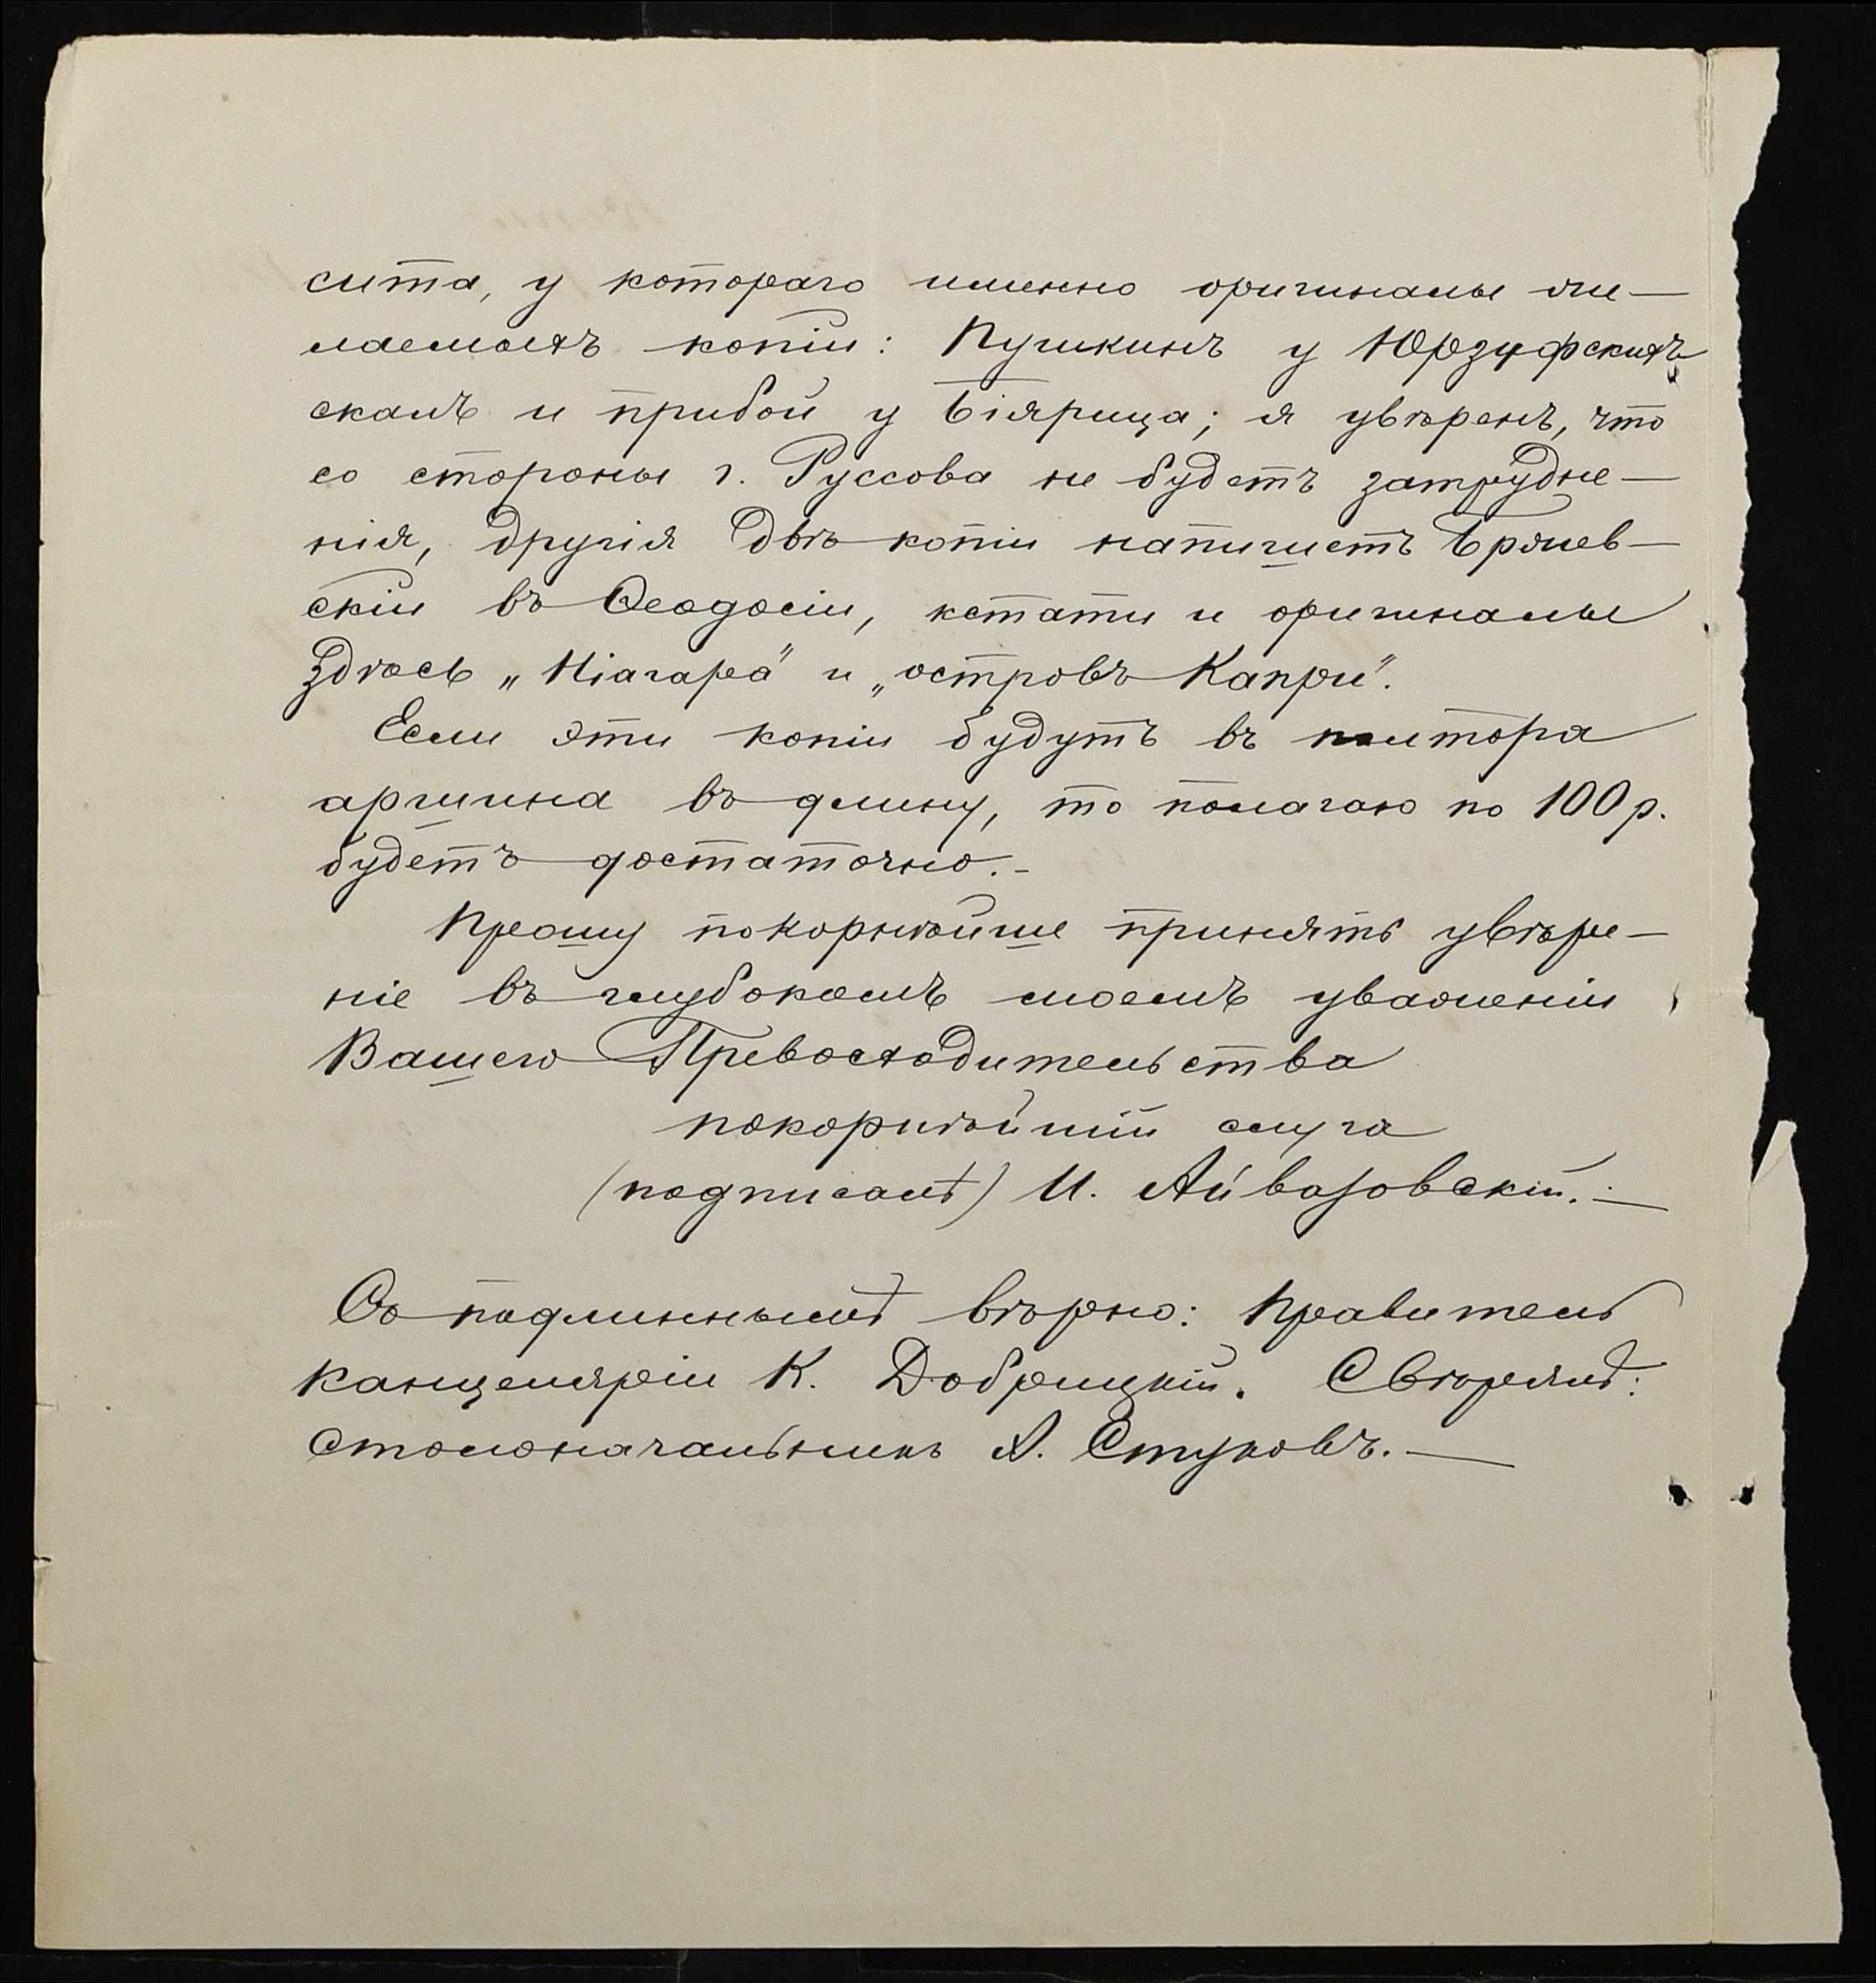 сита, у котораго именно оригиналы же-
лаемыхъ копіи: Пушкинъ у Юрзуфскихъ
скалъ и прибой у Біярица; я увѣренъ, что
со стороны г. Руссова не будетъ затрудне-
нія, другія двѣ копіи напишетъ Бряжев-
скій въ Ѳеодосіи, кстати и оригиналы
Здѣсь „Ніагара" и „островъ Капри".
Если эти копіи будутъ въ полтора
аршина въ длину, то полагаю по 100 р.
будетъ достаточно.-
Прошу покорнѣйше принять увѣре-
ніе въ глубокомъ моемъ уваженіи
Вашего Превосходительства
покорнѣйшій слуга
(подписалъ) И. Айвазовскій.-
Съ подлиннымъ вѣрно: Правитель
канцеляріи К. Добрицкій. Свѣрялъ:
Столоначальникъ А. Стуковъ.-